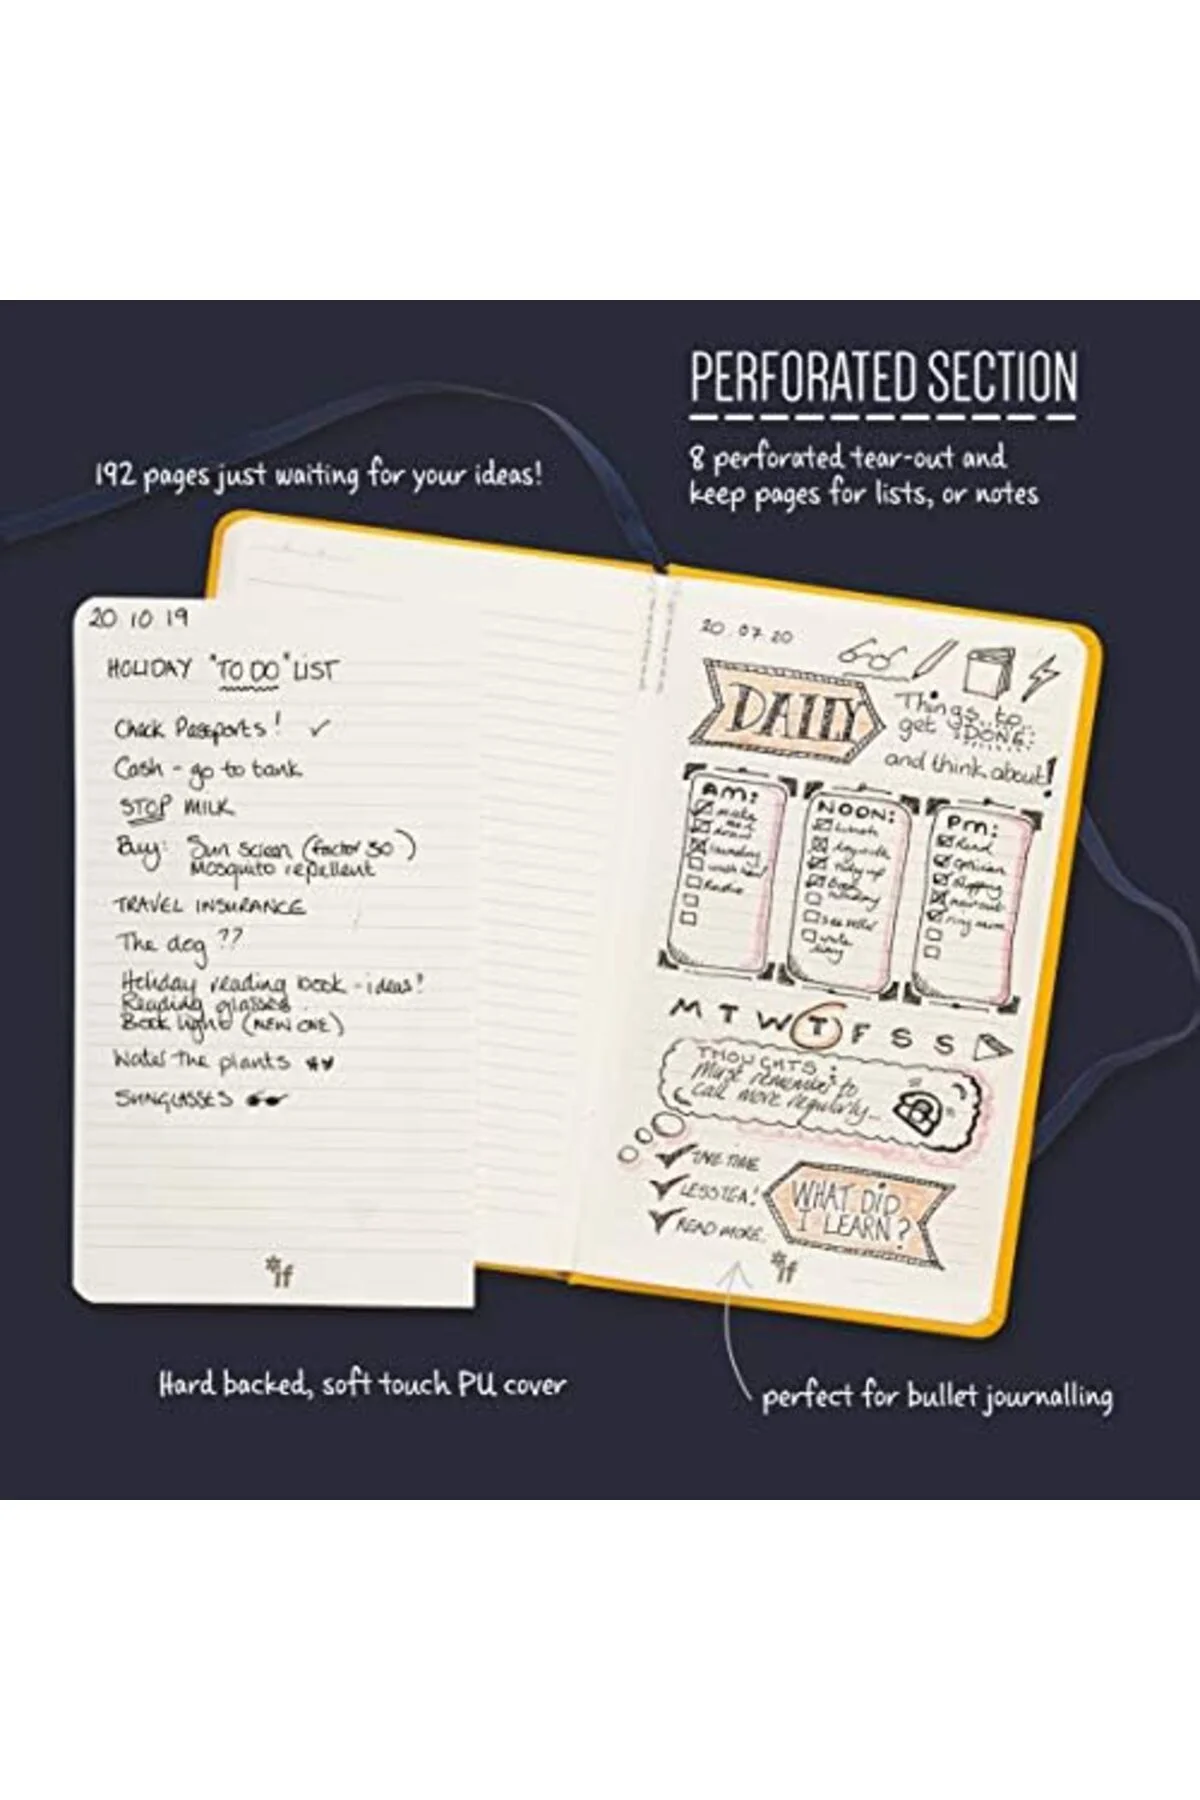 PERFORATED SECTION
8 perforated tear-out and
keep pages for lists, or notes
192 pages just waiting for your ideas!
20 10 19
HOLIDAY "TO DO" LIST
Check Passports! ✓
Cash - go to bank
STOP MILK
Buy: Sun screen (factor 30)
Mosquito repellent
TRAVEL INSURANCE
The dog ??
Holiday reading book - ideas!
Reading glasses
Book light (NEW ONE)
Water the plants
SUNGLASSES
*if
20.07.20
DAILY
Things to
get DONE:
and think about!
AM:
make
bed
laundry
Radio
NOON:
lunch
tidy up
PM:
Read
ring mum
M T W T F S S
THOUGHTS:
Must remember to
call more regularly...
TAKE TIME
LESS TEA!
READ MORE.
WHAT DID
I LEARN?
*if
Hard backed, soft touch PU cover
perfect for bullet journalling